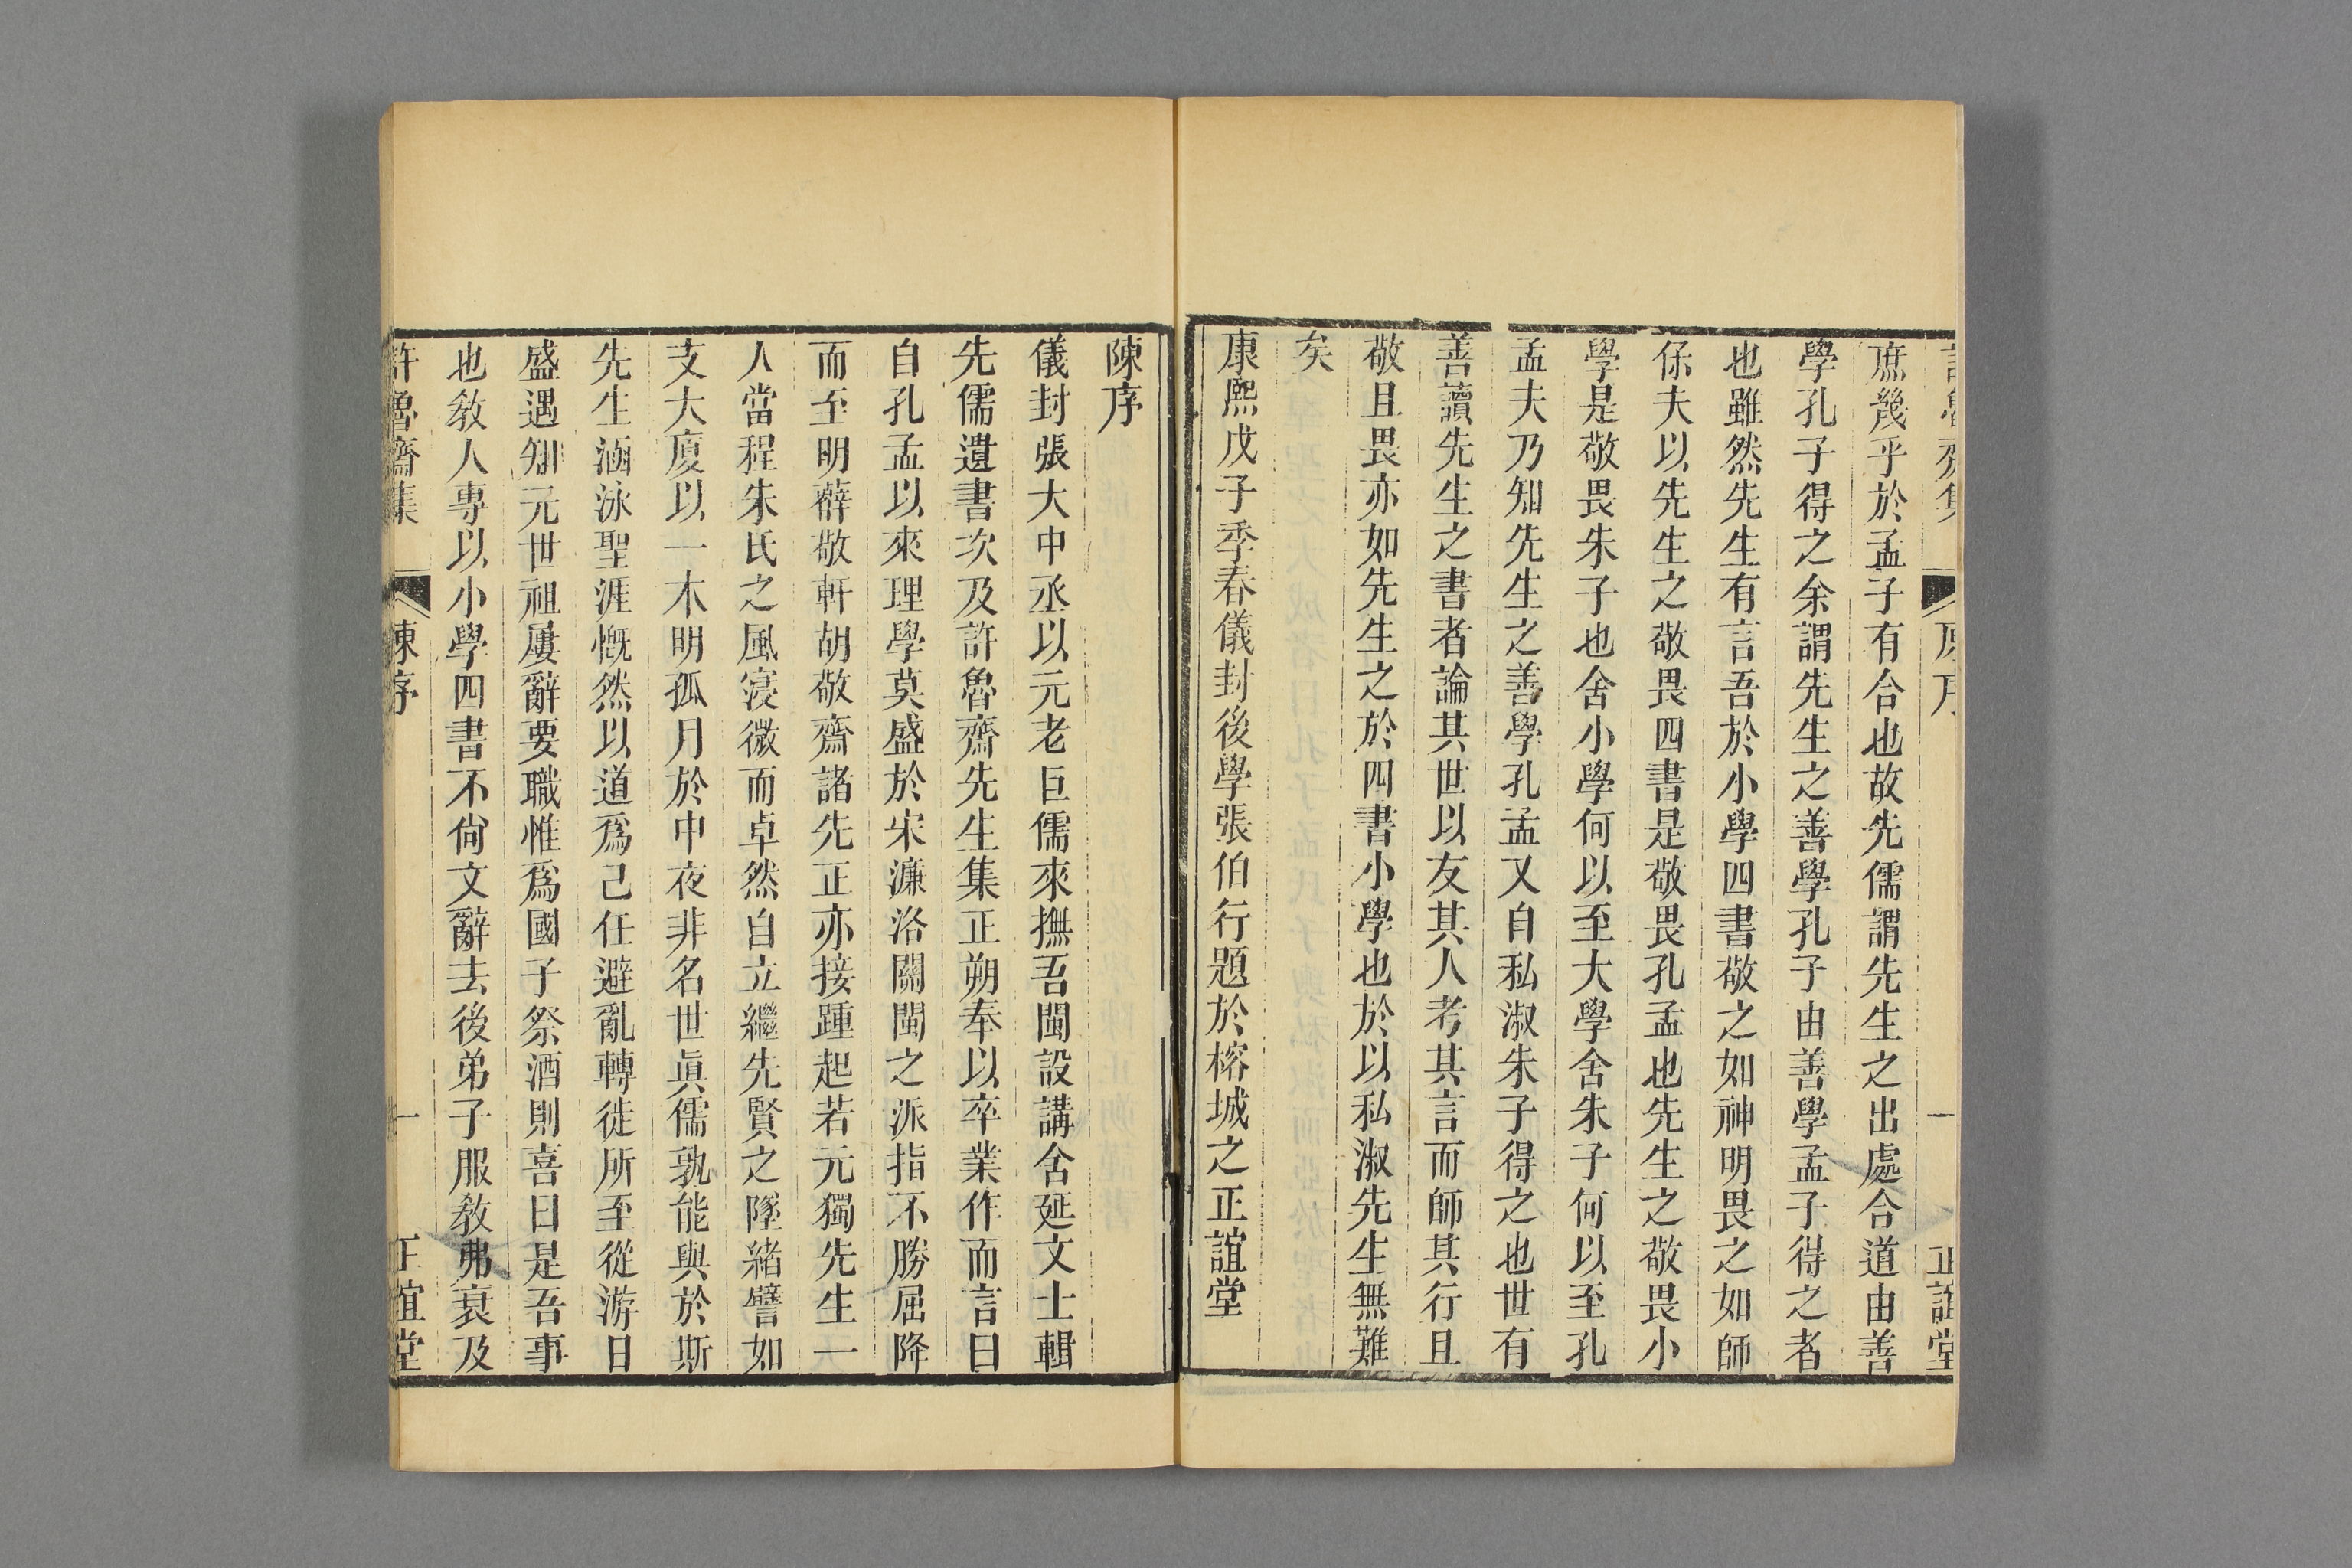 許魯齋集 原序 一 正誼堂
庶幾乎於孟子有合也故先儒謂先生之出處合道由善
學孔子得之余謂先生之善學孔子由善學孟子得之者
也雖然先生有言吾於小學四書敬之如神明畏之如師
保夫以先生之敬畏四書是敬畏孔孟也先生之敬畏小
學是敬畏朱子也舍小學何以至大學舍朱子何以至孔
孟夫乃知先生之善學孔孟又自私淑朱子得之也世有
善讀先生之書者論其世以友其人考其言而師其行且
敬且畏亦如先生之於四書小學也於以私淑先生無難
矣
康熙戊子季春儀封後學張伯行題於榕城之正誼堂
陳序
儀封張大中丞以元老巨儒來撫吾閩設講舍延文士輯
先儒遺書次及許魯齋先生集正朔奉以卒業作而言曰
自孔孟以來理學莫盛於宋濂洛關閩之派指不勝屈降
而至明薛敬軒胡敬齋諸先正亦接踵起若元獨先生一
人當程朱氏之風寖微而卓然自立繼先賢之墜緒譬如
支大廈以一木明孤月於中夜非名世眞儒孰能與於斯
先生涵泳聖涯慨然以道爲己任避亂轉徙所至從游日
盛遇知元世祖屢辭要職惟爲國子祭酒則喜曰是吾事
也敎人專以小學四書不尙文辭去後弟子服敎弗衰及
許魯齋集 陳序 一 正誼堂